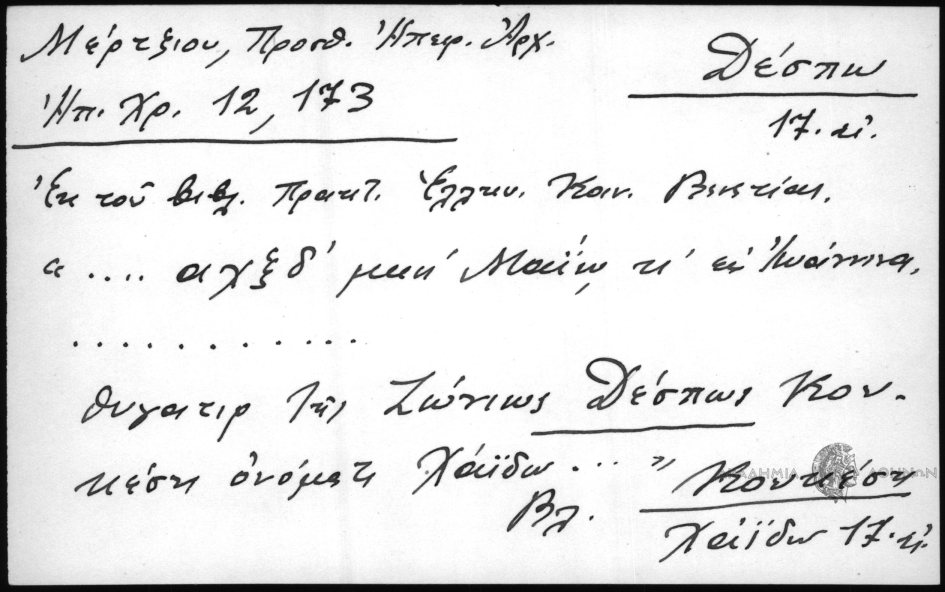 Μέρτζιου, Προσθ. Ἠπειρ. Ἀρχ.
Ἠπ. Χρ. 12, 173
Δέσπω
17. αἰ.
Ἐκ τοῦ βιβλ. Πρακτ. Ἑλλην. Κοιν. Βενετίας.
" .... αχξδ' μηνὶ Μαΐῳ, κ' εἰς Ἰωάννινα.
. . . . . . . . . . . .
θυγατιρ τῆς Δέσπως Κον-
κέση ὀνόματι Χάϊδω ... "
Βλ. Κονκέση
Χάϊδω 17. αἰ.
ΔΗΜΙΑ ΑΘΗΝΩΝ